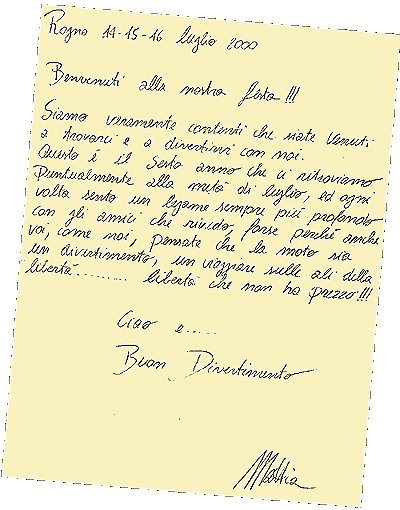 Rogno 14-15-16 luglio 2000
Benvenuti alla nostra festa !!!
Siamo veramente contenti che siate venuti
a trovarci e a divertirvi con noi.
Questo è il sesto anno che ci ritroviamo
puntualmente alla metà di luglio, ed ogni
volta sento un legame sempre più profondo
con gli amici che rivedo, forse perchè anche
voi, come noi, pensate che la moto sia
un divertimento, un viaggiare sulle ali della
libertà.......... libertà che non ha prezzo !!!
Ciao e.....
Buon Divertimento
Mattia